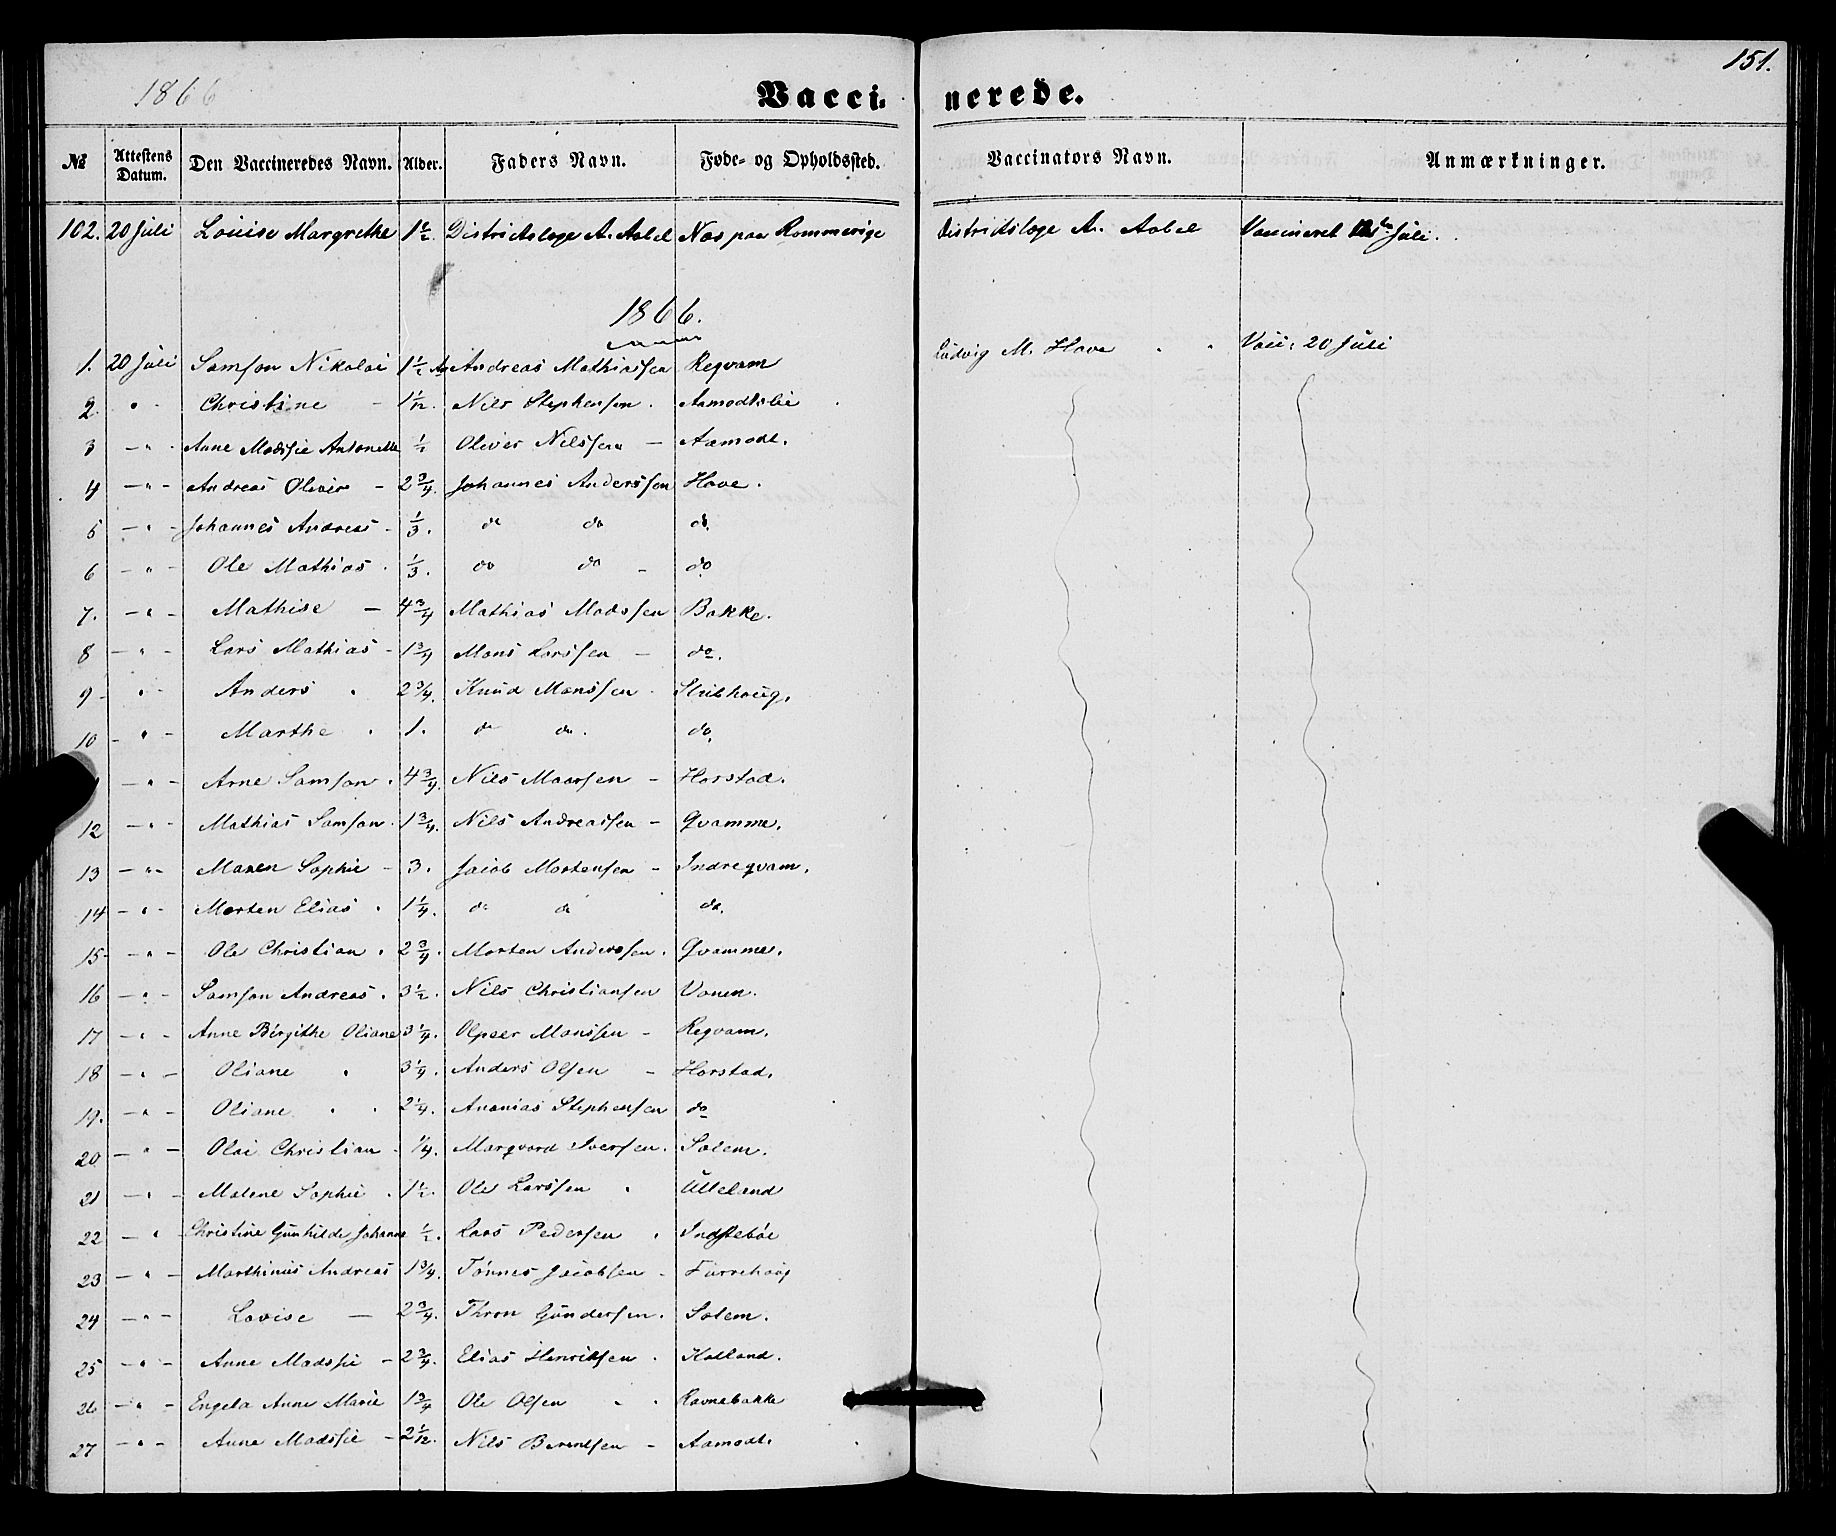 1866
151.
Vacci- nerede.
№ Attestens Datum. Den Vaccineredes Navn. Alder. Faders Navn. Føde- og Opholdssted. Vaccinators Navn. Anmærkninger.
102. 20 Juli Louise Margrethe 1½. Districtslæge A. Aabel Næs paa Rommerige Districtslæge A. Aabel Vaccineret Juli.
1866.
1. 20 Juli Samson Nikolai 1½ Andreas Mathiassen Reqvam Ludvig M. Hove " " Vacc: 20 Juli
2. " - Christine - 1 1/12. Nils Stephensen. Aamodtslie
3 - " - Anne Madssie Antonette ½ Oliver Nilssen - Aamodt.
4 - " - Andreas Olivir - 2¾. Johannes Anderssen Hove.
5 - " - Johannes Andreas - ⅓. do do do.
6 - " - Ole Mathias. ⅓. do do - do
7. - " - Mathise - 4¾ Mathias Madssen Bakke.
8 - " - Lars Mathias - 1¾ Mons Larssen - do.
9 - " - Anders " 2¾. Knud Monssen - Skibhoug.
10 - " - Marthe " 1. do do. do.
- " - Arne Samson. 4¾. Nils Maarsen - Horstad.
12 - " - Mathias Samson. 1¾. Nils Andreassen - Qvamme.
13 - " - Maren Sophie - 3. Jacob Mortensen - Indreqvam.
14 - " - Morten Elias. 1¼. do do do.
15 - " - Ole Christian. 2¾. Morten Anderssen. Qvamme.
16 - " - Samson Andreas. 3½. Nils Christiansen Vonen.
17 - " - Anne Birgithe Oliane 3¼. Olpeer Monssen - Reqvam.
18 - " - Oliane " 3¼. Anders Olsen - Horstad.
19. - " - Oliane " " 2¼. Ananias Stephensen do
20 - " - Olai Christian - ¼. Marqvard Iversen. Solem.
21 - " - Malene Sophie. 1½. Ole Larssen " Ulleland
22 - " Christine Gunhilde Johanne ½. Lars Pedersen " Indstebøe
23 - " - Marthinus Andreas 1¾. Tønnes Jacobsen - Furrehoug
24 - " - Lovise - 2¾. Thron Gundersen. Solem.
25 - " - Anne Madssie - 2¾. Elias Henriksen. Kolland.
26 - " - Engela Anne Marie 1¾ Ole Olsen " " Ravnebakke
27 - " - Anne Madssie - 2 1/12. Nils Berentsen - Aamodt.